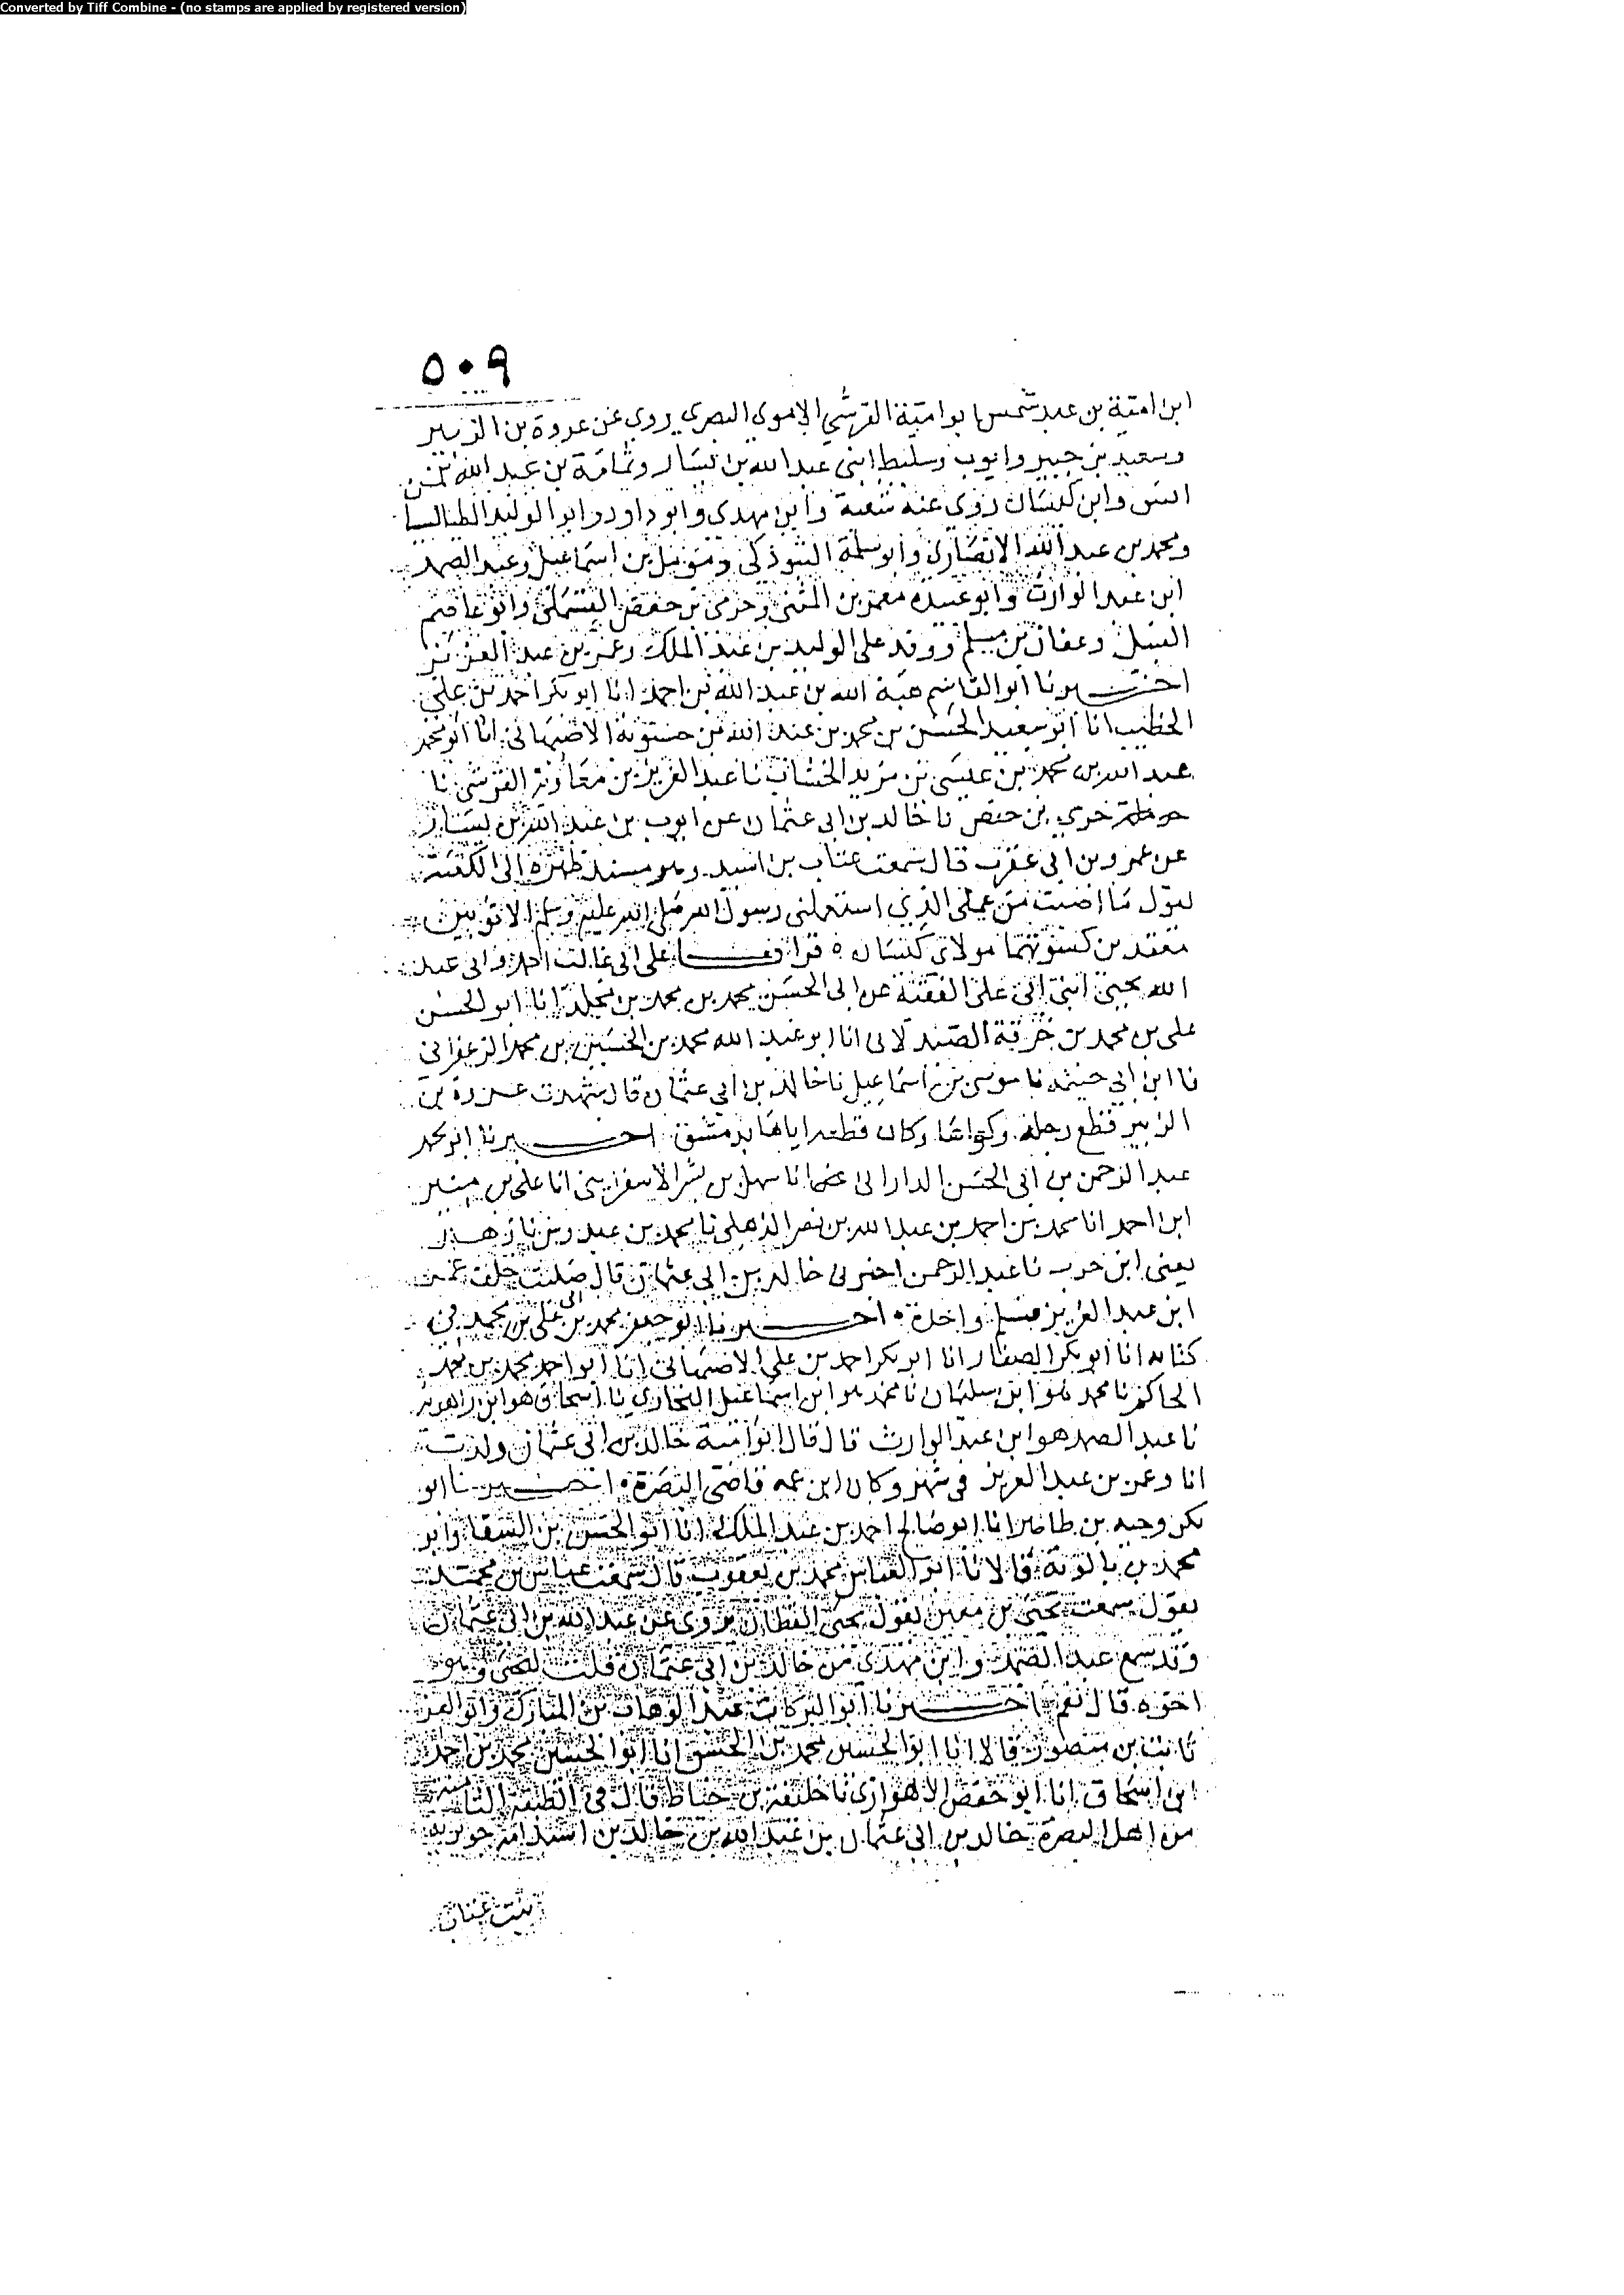 Converted by Tiff Combine - (no stamps are applied by registered version)
٥٠٩
ابن امية بن عبد شمس ابو امية القرشي الاموي البصري روي عن عروة بن الزبير
وسعيد بن جبير وايوب وسليط ابني عبد الله بن يسار وثمامة بن عبد الله بن
انس وابن كيسان روى عنه شعبة وابن مهدي وابو داود وابو الوليد الطيالسيا
ومحمد بن عبد الله الانصاري وابو سلمة التبوذكي ومؤمل بن اسماعيل وعبد الصمد
ابن عبد الوارث وابو عبيدة معمر بن المثنى وحرمي بن حفص القسملي وابو عاصم
النبيل وعفان بن مسلم ووفد على الوليد بن عبد الملك وعمر بن عبد العزيز
اخبرنا ابو القاسم هبة الله بن عبد الله بن احمد انا ابو بكر احمد بن علي
الخطيب انا ابو سعيد الحسن بن محمد بن عبد الله بن حسنويه الاصبهاني انا ابو محمد
عبد الله بن محمد بن عيسى بن مزيد الخشاب نا عبد العزيز بن معاوية القرشي نا
حرمي بن حفص نا خالد بن ابي عثمان عن ايوب بن عبد الله بن يسار
عن عمرو بن ابي عقرب قال سمعت عتاب بن اسيد وهو مسند ظهره الى الكعبة
يقول ما اصبت من عملي الذي استعملني رسول الله صلى الله عليه وسلم الا ثوبين
معقدين كسوتهما مولاي كيسان ه قرات على ابي غالب احمد وابي عبد
الله يحيى ابني ابي علي الفقيه عن ابي الحسن محمد بن محمد بن مخلد انا ابو الحسن
علي بن محمد بن خزفة الصيدلاني انا ابو عبد الله محمد بن الحسين بن محمد الزعفراني
نا ابن ابي خيثمه نا موسى بن اسماعيل نا خالد بن ابي عثمان قال شهدت عروة بن
الزبير قطع رجله وكواها وكان قطعه اياها بدمشق اخبرنا ابو محمد
عبد الرحمن بن ابي الحسن الداراني انا سهل بن بشر الاسفرايني انا علي بن منير
ابن احمد انا محمد بن احمد بن عبد الله بن نصر الذهلي نا محمد بن عبدوس نا زهير
يعني ابن حرب نا عبد الرحمن اخبرني خالد بن ابي عثمان قال صليت خلف عمر
ابن عبد العزيز فسلم واحدة ه اخبرنا ابو جعفر محمد بن ابي علي بن محمد في
كتابه انا ابو بكر الصفار انا ابو بكر احمد بن علي الاصبهاني انا ابو احمد محمد بن محمد
الحاكم نا محمد هو ابن سليمان نا محمد هو ابن اسماعيل البخاري نا اسحاق هو ابن راهويه
نا عبد الصمد هو ابن عبد الوارث قال قال ابو امية خالد بن ابي عثمان ولدت
انا وعمر بن عبد العزيز في شهر وكان ابن عمه قاضي البصرة ه اخبرنا ابو
بكر وجيه بن طاهر انا ابو صالح احمد بن عبد الملك انا ابو الحسن بن السقا وابو
محمد بن بالويه قالا نا ابو العباس محمد بن يعقوب قال سمعت عباس بن محمد
يقول سمعت يحيى بن معين يقول يحيى القطان يروى عن عبد الله بن ابي عثمان
وقد سمع عبد الصمد وابن مهدي من خالد بن ابي عثمان قلت ليحيى وهو
اخوه قال نعم اخبرنا ابو البركات عبد الوهاب بن المبارك وابو العز
ثابت بن منصور قالا انا ابو الحسين محمد بن الحسن انا ابو الحسين محمد بن احمد
ابن اسحاق انا ابو حفص الاهوازي نا خليفة بن خياط قال في الطبقة الثامنة
من اهل البصرة خالد بن ابي عثمان بن عبد الله بن خالد بن اسيد امه جويرية
بنت عنان